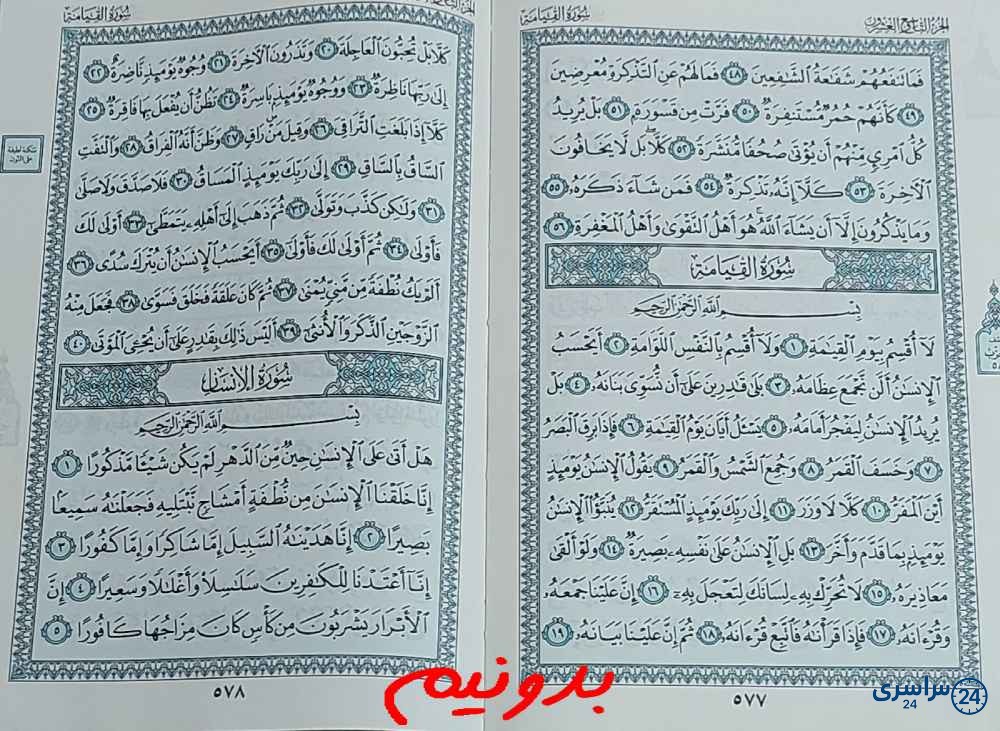 سُورَةُ القِيَامَةِ
الجزء التاسع والعشرون
فَمَا تَنفَعُهُمْ شَفَٰعَةُ ٱلشَّٰفِعِينَ ٤٨ فَمَا لَهُمْ عَنِ ٱلتَّذْكِرَةِ مُعْرِضِينَ
٤٩ كَأَنَّهُمْ حُمُرٌ مُّسْتَنفِرَةٌ ٥٠ فَرَّتْ مِن قَسْوَرَةٍ ٥١ بَلْ يُرِيدُ
كُلُّ ٱمْرِئٍ مِّنْهُمْ أَن يُؤْتَىٰ صُحُفًا مُّنَشَّرَةً ٥٢ كَلَّا بَل لَّا يَخَافُونَ
ٱلْآخِرَةَ ٥٣ كَلَّا إِنَّهُۥ تَذْكِرَةٌ ٥٤ فَمَن شَآءَ ذَكَرَهُۥ ٥٥
وَمَا يَذْكُرُونَ إِلَّا أَن يَشَآءَ ٱللَّهُ هُوَ أَهْلُ ٱلتَّقْوَىٰ وَأَهْلُ ٱلْمَغْفِرَةِ ٥٦
سُورَةُ القِيَامَةِ
بِسْمِ ٱللَّهِ ٱلرَّحْمَٰنِ ٱلرَّحِيمِ
لَآ أُقْسِمُ بِيَوْمِ ٱلْقِيَٰمَةِ ١ وَلَآ أُقْسِمُ بِٱلنَّفْسِ ٱللَّوَّامَةِ ٢ أَيَحْسَبُ
ٱلْإِنسَٰنُ أَلَّن نَّجْمَعَ عِظَامَهُۥ ٣ بَلَىٰ قَٰدِرِينَ عَلَىٰٓ أَن نُّسَوِّىَ بَنَانَهُۥ ٤ بَلْ
يُرِيدُ ٱلْإِنسَٰنُ لِيَفْجُرَ أَمَامَهُۥ ٥ يَسْـَٔلُ أَيَّانَ يَوْمُ ٱلْقِيَٰمَةِ ٦ فَإِذَا بَرِقَ ٱلْبَصَرُ
٧ وَخَسَفَ ٱلْقَمَرُ ٨ وَجُمِعَ ٱلشَّمْسُ وَٱلْقَمَرُ ٩ يَقُولُ ٱلْإِنسَٰنُ يَوْمَئِذٍ
أَيْنَ ٱلْمَفَرُّ ١٠ كَلَّا لَا وَزَرَ ١١ إِلَىٰ رَبِّكَ يَوْمَئِذٍ ٱلْمُسْتَقَرُّ ١٢ يُنَبَّؤُا۟ ٱلْإِنسَٰنُ
يَوْمَئِذٍۭ بِمَا قَدَّمَ وَأَخَّرَ ١٣ بَلِ ٱلْإِنسَٰنُ عَلَىٰ نَفْسِهِۦ بَصِيرَةٌ ١٤ وَلَوْ أَلْقَىٰ
مَعَاذِيرَهُۥ ١٥ لَا تُحَرِّكْ بِهِۦ لِسَانَكَ لِتَعْجَلَ بِهِۦٓ ١٦ إِنَّ عَلَيْنَا جَمْعَهُۥ
وَقُرْءَانَهُۥ ١٧ فَإِذَا قَرَأْنَٰهُ فَٱتَّبِعْ قُرْءَانَهُۥ ١٨ ثُمَّ إِنَّ عَلَيْنَا بَيَانَهُۥ ١٩
٥٧٧
سُورَةُ القِيَامَةِ
كَلَّا بَلْ تُحِبُّونَ ٱلْعَاجِلَةَ ٢٠ وَتَذَرُونَ ٱلْآخِرَةَ ٢١ وُجُوهٌ يَوْمَئِذٍ نَّاضِرَةٌ ٢٢
إِلَىٰ رَبِّهَا نَاظِرَةٌ ٢٣ وَوُجُوهٌ يَوْمَئِذٍۭ بَاسِرَةٌ ٢٤ تَظُنُّ أَن يُفْعَلَ بِهَا فَاقِرَةٌ ٢٥
كَلَّآ إِذَا بَلَغَتِ ٱلتَّرَاقِىَ ٢٦ وَقِيلَ مَنْ رَاقٍ ٢٧ وَظَنَّ أَنَّهُ ٱلْفِرَاقُ ٢٨ وَٱلْتَفَّتِ
ٱلسَّاقُ بِٱلسَّاقِ ٢٩ إِلَىٰ رَبِّكَ يَوْمَئِذٍ ٱلْمَسَاقُ ٣٠ فَلَا صَدَّقَ وَلَا صَلَّىٰ
٣١ وَلَٰكِن كَذَّبَ وَتَوَلَّىٰ ٣٢ ثُمَّ ذَهَبَ إِلَىٰٓ أَهْلِهِۦ يَتَمَطَّىٰٓ ٣٣ أَوْلَىٰ لَكَ
فَأَوْلَىٰ ٣٤ ثُمَّ أَوْلَىٰ لَكَ فَأَوْلَىٰٓ ٣٥ أَيَحْسَبُ ٱلْإِنسَٰنُ أَن يُتْرَكَ سُدًى ٣٦
أَلَمْ يَكُ نُطْفَةً مِّن مَّنِىٍّ يُمْنَىٰ ٣٧ ثُمَّ كَانَ عَلَقَةً فَخَلَقَ فَسَوَّىٰ ٣٨ فَجَعَلَ مِنْهُ
ٱلزَّوْجَيْنِ ٱلذَّكَرَ وَٱلْأُنثَىٰٓ ٣٩ أَلَيْسَ ذَٰلِكَ بِقَٰدِرٍ عَلَىٰٓ أَن يُحْـِۧىَ ٱلْمَوْتَىٰ ٤٠
سُورَةُ الإِنسَانِ
بِسْمِ ٱللَّهِ ٱلرَّحْمَٰنِ ٱلرَّحِيمِ
هَلْ أَتَىٰ عَلَى ٱلْإِنسَٰنِ حِينٌ مِّنَ ٱلدَّهْرِ لَمْ يَكُن شَيْـًٔا مَّذْكُورًا ١
إِنَّا خَلَقْنَا ٱلْإِنسَٰنَ مِن نُّطْفَةٍ أَمْشَاجٍ نَّبْتَلِيهِ فَجَعَلْنَٰهُ سَمِيعًۢا
بَصِيرًا ٢ إِنَّا هَدَيْنَٰهُ ٱلسَّبِيلَ إِمَّا شَاكِرًا وَإِمَّا كَفُورًا ٣
إِنَّآ أَعْتَدْنَا لِلْكَٰفِرِينَ سَلَٰسِلَا۟ وَأَغْلَٰلًا وَسَعِيرًا ٤ إِنَّ
ٱلْأَبْرَارَ يَشْرَبُونَ مِن كَأْسٍ كَانَ مِزَاجُهَا كَافُورًا ٥
٥٧٨
بدونیم
سراسری
24
24